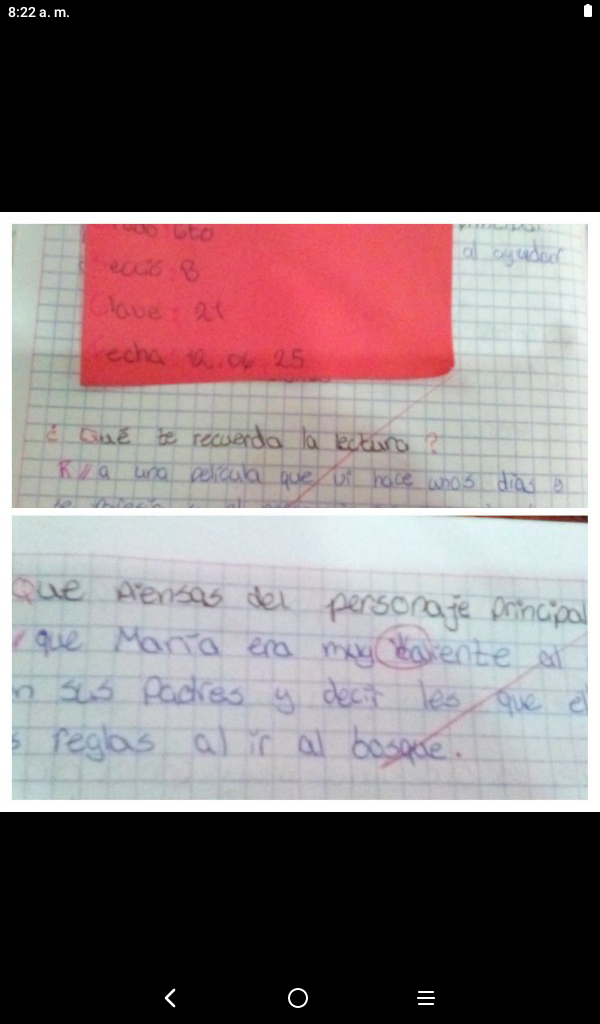 8:22 a. m.
6to
al ayudar
Secció: B
Clave: 21
Fecha 12.04.25
¿Qué te recuerda la lectura?
R// a una película que vi hace unos días y
Que Piensas del personaje principal
que María era muy al
n sus Padres y decir les que el
s reglas al ir al bosque.